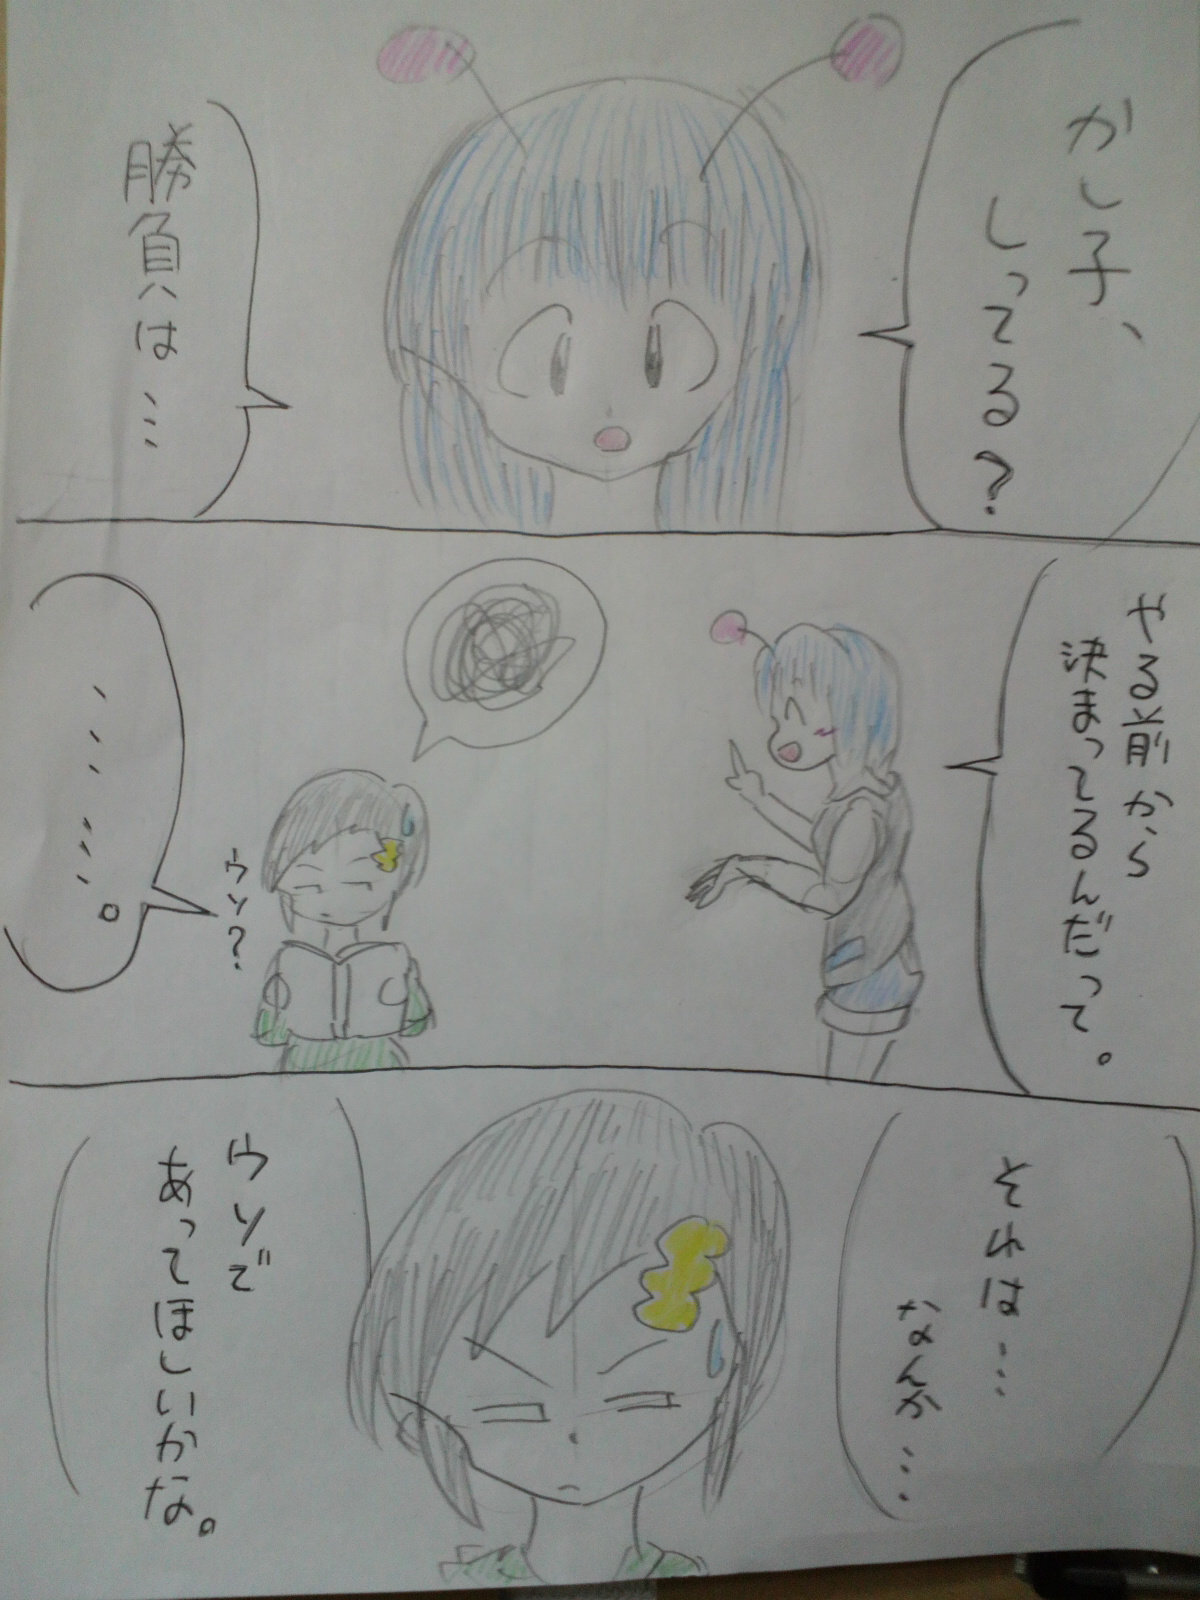 かし子、
しってる?
勝負は…
やる前から
決まってるんだって。
ウソ?
……。
それは…
なんか…
ウソで
あってほしいかな。